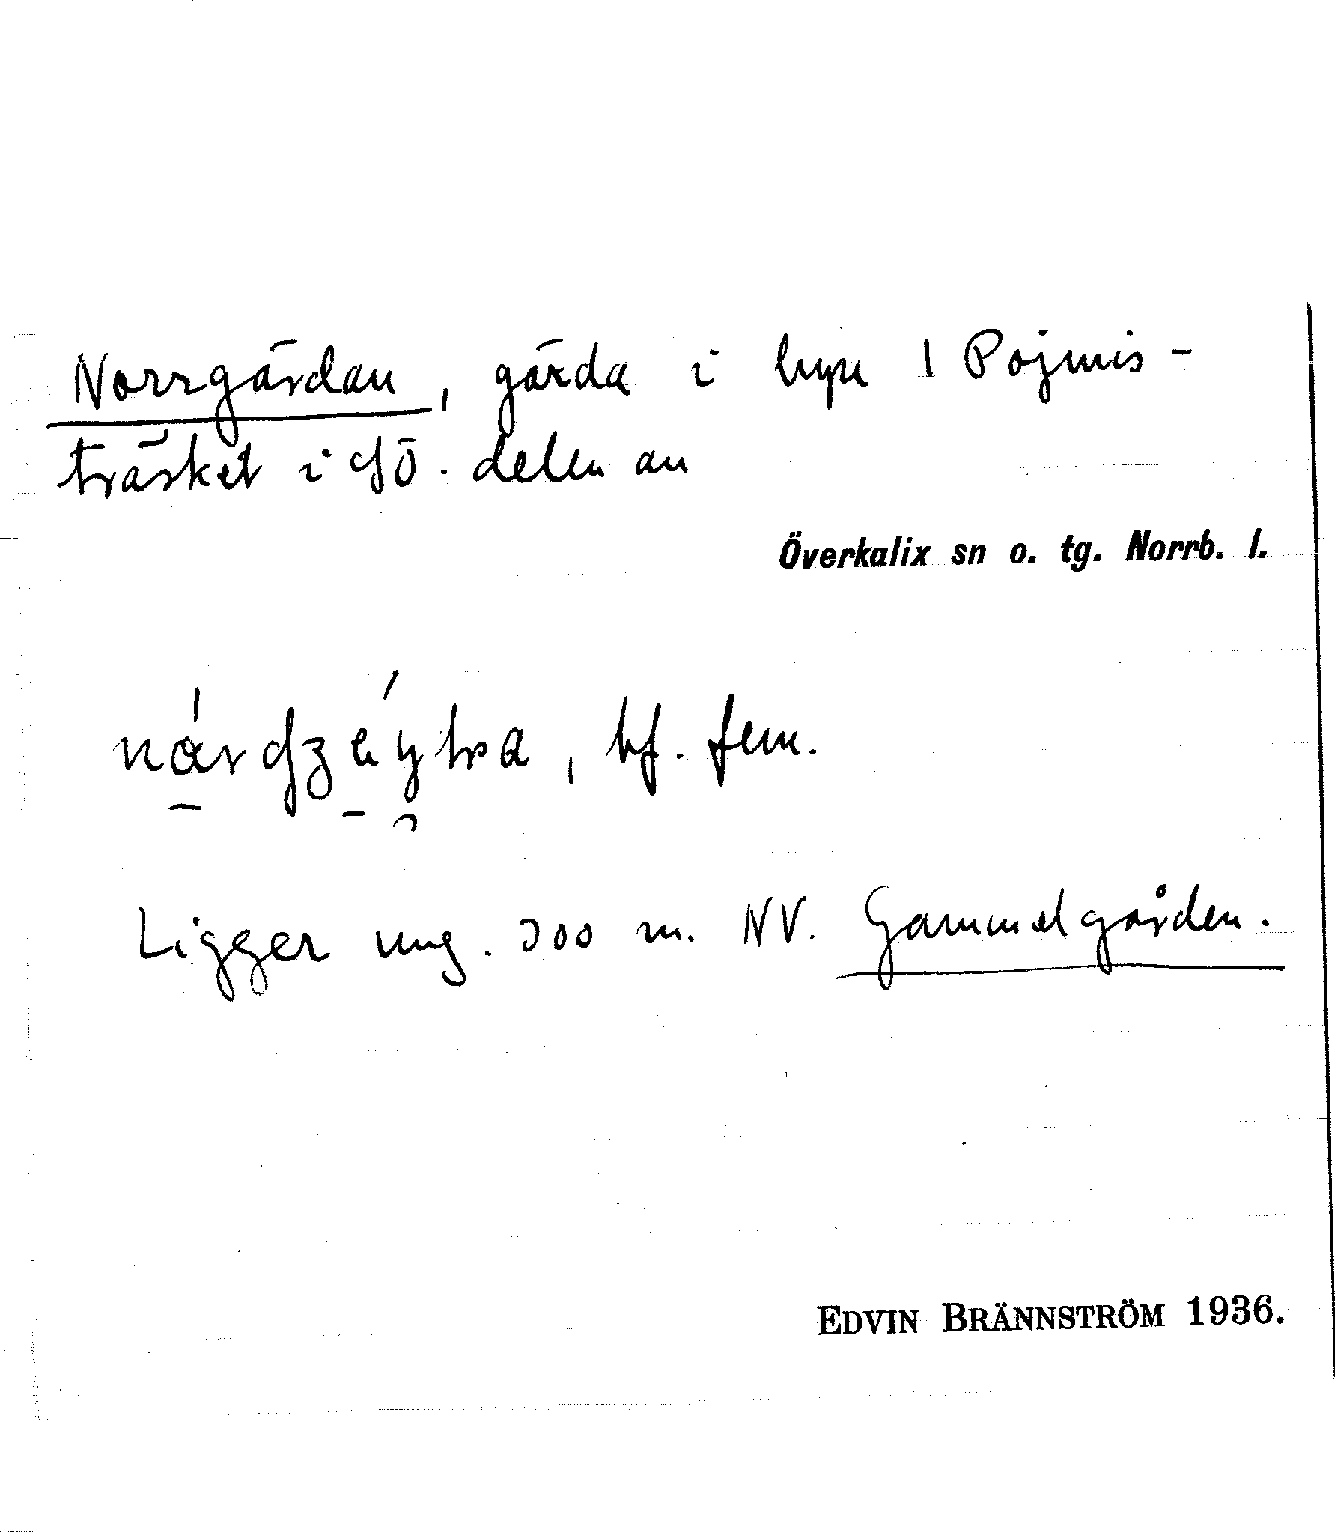 Norrgärdan, gärda i byn 1 Pojmis-
träsket i SÖ. delen av
Överkalix sn o. tg. Norrb. l.
, bf. fem.
Ligger ung. 300 m. NV. Gammelgården.
EDVIN BRÄNNSTRÖM 1936.